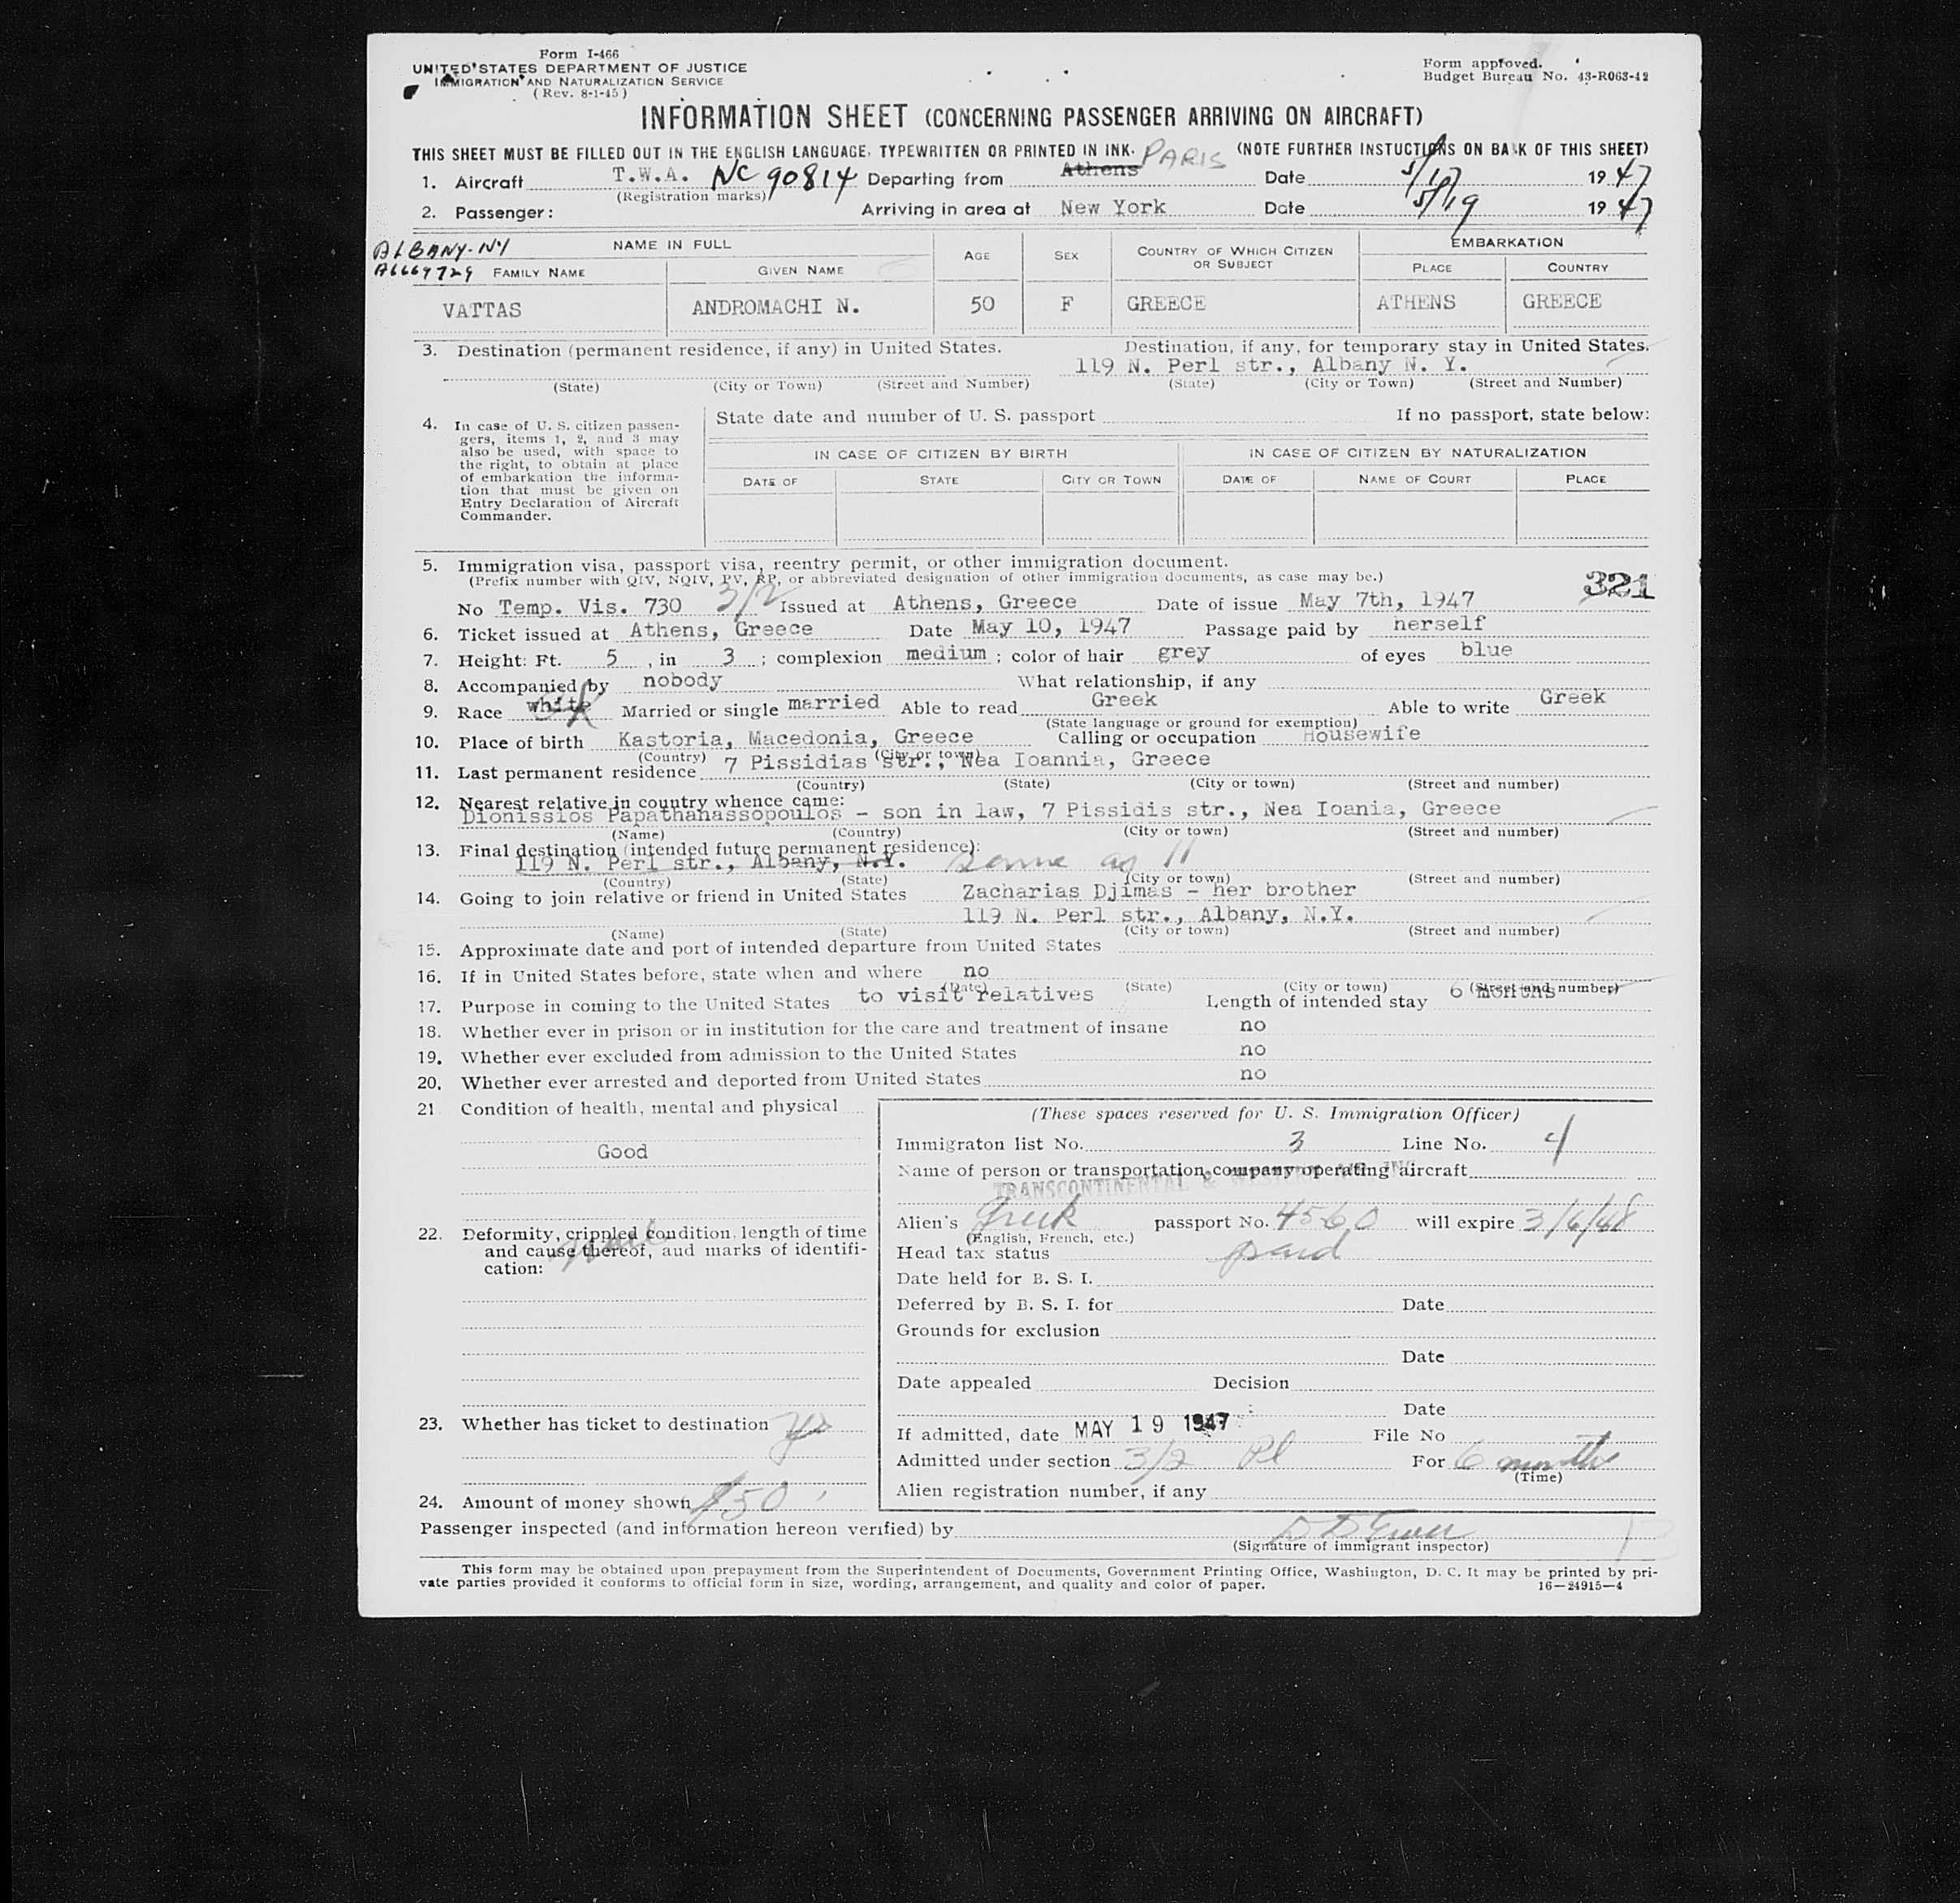 Form I-466
UNITED STATES DEPARTMENT OF JUSTICE
IMMIGRATION AND NATURALIZATION SERVICE
(Rev. 8-1-45)
Form approved.
Budget Bureau No. 43-R063-42
INFORMATION SHEET (CONCERNING PASSENGER ARRIVING ON AIRCRAFT)
THIS SHEET MUST BE FILLED OUT IN THE ENGLISH LANGUAGE, TYPEWRITTEN OR PRINTED IN INK. (NOTE FURTHER INSTUCTIONS ON BACK OF THIS SHEET)
1. Aircraft T.W.A. NC 90814 Departing from Athens PARIS Date 1947
(Registration marks)
2. Passenger: Arriving in area at New York Date 5/19 1947
ALBANY-NY NAME IN FULL AGE SEX COUNTRY OF WHICH CITIZEN OR SUBJECT EMBARKATION
A6669729 FAMILY NAME GIVEN NAME PLACE COUNTRY
VATTAS ANDROMACHI N. 50 F GREECE ATHENS GREECE
3. Destination (permanent residence, if any) in United States. Destination, if any, for temporary stay in United States.
119 N. Perl str., Albany N. Y.
(State) (City or Town) (Street and Number) (State) (City or Town) (Street and Number)
4. In case of U. S. citizen passen-
gers, items 1, 2, and 3 may
also be used, with space to
the right, to obtain at place
of embarkation the informa-
tion that must be given on
Entry Declaration of Aircraft
Commander.
State date and number of U. S. passport If no passport, state below:
IN CASE OF CITIZEN BY BIRTH IN CASE OF CITIZEN BY NATURALIZATION
DATE OF STATE CITY OR TOWN DATE OF NAME OF COURT PLACE
5. Immigration visa, passport visa, reentry permit, or other immigration document.
(Prefix number with QIV, NQIV, PV, RP, or abbreviated designation of other immigration documents, as case may be.) 321
No Temp. Vis. 730 3/2 Issued at Athens, Greece Date of issue May 7th, 1947
6. Ticket issued at Athens, Greece Date May 10, 1947 Passage paid by herself
7. Height: Ft. 5, in 3; complexion medium; color of hair grey of eyes blue
8. Accompanied by nobody What relationship, if any
9. Race white Married or single married Able to read Greek Able to write Greek
(State language or ground for exemption)
10. Place of birth Kastoria, Macedonia, Greece Calling or occupation Housewife
(Country) (City or town)
11. Last permanent residence 7 Pissidias str., Nea Ioannia, Greece
(Country) (State) (City or town) (Street and number)
12. Nearest relative in country whence came:
Dionissios Papathanassopoulos - son in law, 7 Pissidis str., Nea Ioania, Greece
(Name) (Country) (City or town) (Street and number)
13. Final destination (intended future permanent residence):
119 N. Perl str., Albany, N.Y. same as 11
(Country) (State) (City or town) (Street and number)
14. Going to join relative or friend in United States Zacharias Djimas - her brother
119 N. Perl str., Albany, N.Y.
(Name) (State) (City or town) (Street and number)
15. Approximate date and port of intended departure from United States
16. If in United States before, state when and where no
(Date) (State) (City or town) (Street and number)
17. Purpose in coming to the United States to visit relatives Length of intended stay 6 months
18. Whether ever in prison or in institution for the care and treatment of insane no
19. Whether ever excluded from admission to the United States no
20. Whether ever arrested and deported from United States no
21 Condition of health, mental and physical
Good
22. Deformity, crippled condition, length of time
and cause thereof, aud marks of identifi-
cation:
23. Whether has ticket to destination yes
24. Amount of money shown $50
(These spaces reserved for U. S. Immigration Officer)
Immigraton list No. 3 Line No. 4
Name of person or transportation company operating aircraft
TRANSCONTINENTAL & WESTERN AIR INC
Alien's Greek passport No. 4560 will expire 3/6/48
(English, French, etc.)
Head tax status paid
Date held for B. S. I.
Deferred by B. S. I. for Date
Grounds for exclusion
Date
Date appealed Decision
Date
If admitted, date MAY 19 1947 File No
Admitted under section 3/2 Pl For 6 months
(Time)
Alien registration number, if any
Passenger inspected (and information hereon verified) by
(Signature of immigrant inspector)
This form may be obtained upon prepayment from the Superintendent of Documents, Government Printing Office, Washington, D. C. It may be printed by pri-
vate parties provided it conforms to official form in size, wording, arrangement, and quality and color of paper. 16—24915—4